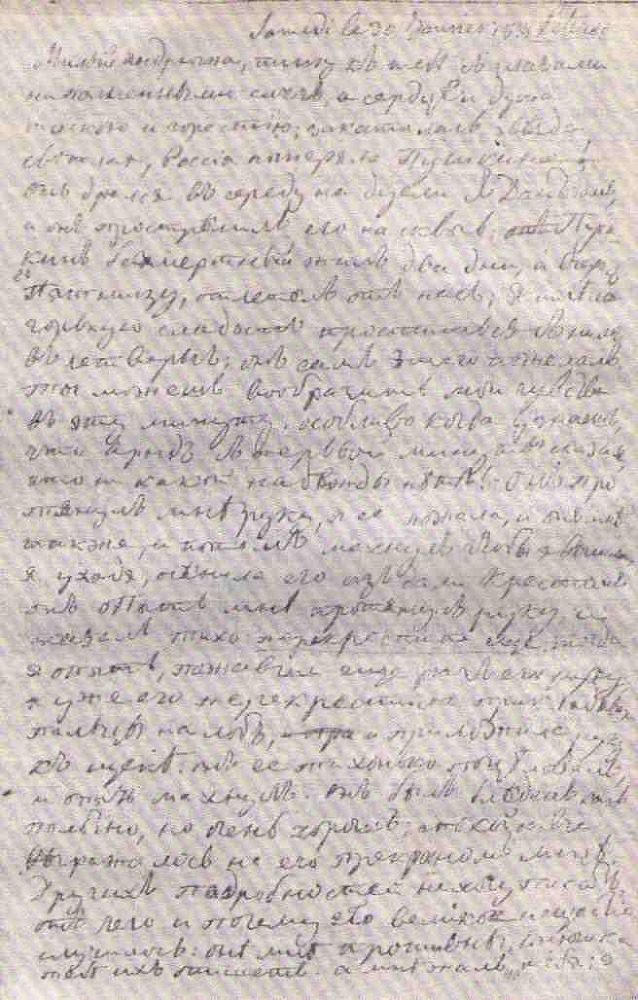 Samedi le 30 Janvier 1837
Милый Андрюша, пишу къ тебѣ съ глазами
наполненными слезъ, а сердце и душа
тоскою и горестію; закатилась звезда
светлая, Россія потеряла Пушкина!
онъ дрался въ середу на дуели съ Дантезомъ,
и онъ прострелилъ его на сквозь; Пуш
кинъ безсмертный жилъ два дни, а вчерась
въ Пятницу, отлетелъ отъ насъ; я имела
горькую сладость проститься съ нимъ
въ четвергъ; онъ самъ этаго пожелалъ
ты можешь вообразить мои чувства
въ эту минуту, особливо когда узнаешь,
что Арндъ съ первой минуты сказалъ,
что никакой надежды нетъ! онъ про
тянулъ мне руку, я ее пожала, и онъ мне
также, и потомъ махнулъ чтобы я вышла
я уходя, осенила его издали крестомъ
онъ опять мне протянулъ руку и
сказалъ тихо перекрестите еще, тогда
я опять, пожавши еще разъ его руку
я уже его перекрестила прикладывая
пальцы на лобъ, и приложила руку
къ щеке: онъ ее тихонько поцеловалъ,
и опять махнулъ. онъ былъ бледенъ какъ
полотно, но очень хорошъ; спокойствіе
выражалось на его прекрасномъ лице.
Другихъ подробностей не хочу писать,
отъ чего и почему это великое несчастіе
случилось: оне мне противны;
тебе ихъ опишетъ. а мне жаль